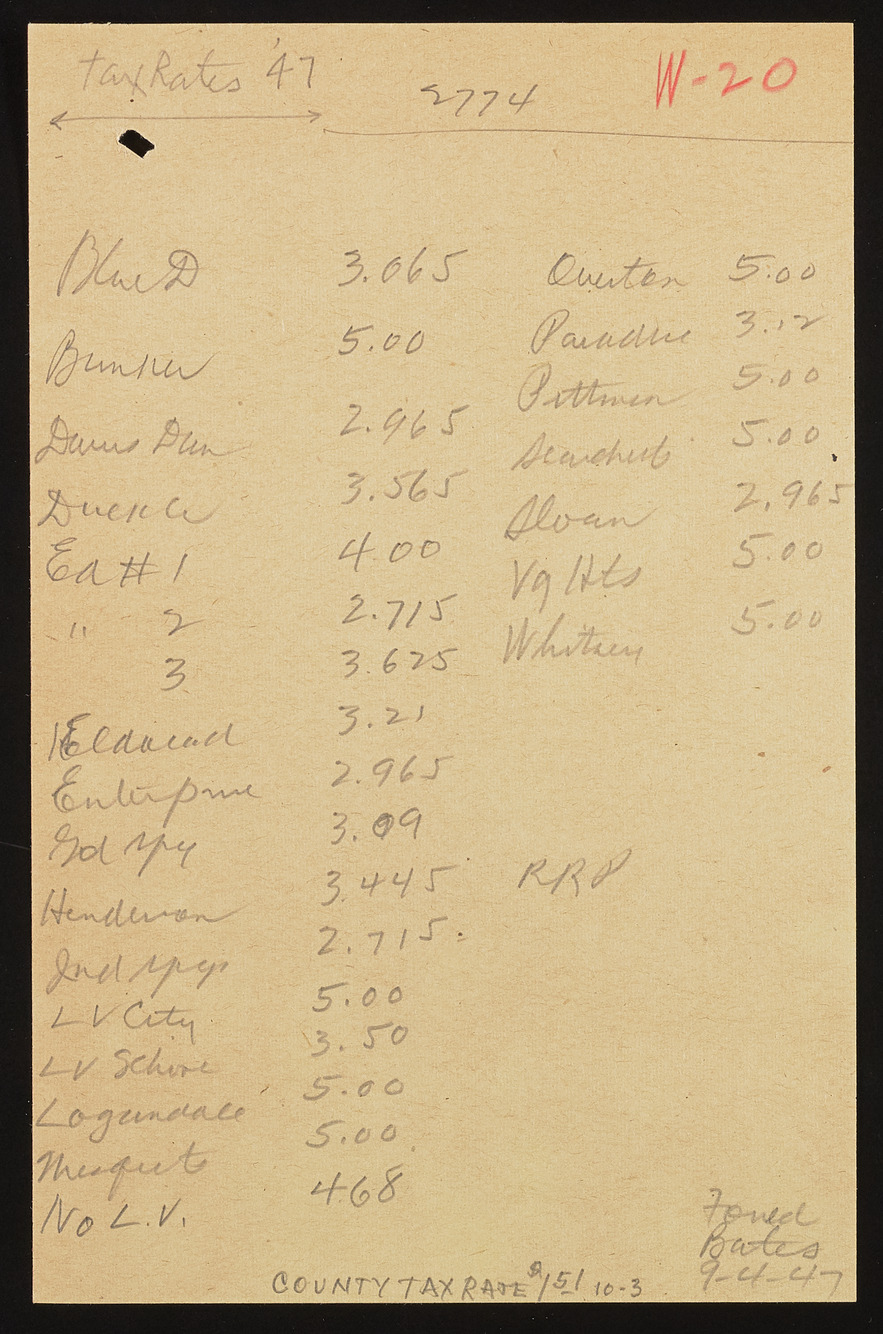 Tax Rates '47
2774
W-20
Blue D 3.065
Bunker 5.00
Davis Dam 2.965
Duckle 3.565
Ed # 1 4.00
" 2 2.715
3 3.625
Eldorad 3.21
Enterprise 2.965
Gd Spg 3.09
Henderson 3.445
Ind Spgs 2.715
L V City 5.00
LV School 3.50
Logandale 5.00
Mesquite 5.00
No L.V. 4.68
Overton 5.00
Paradise 3.12
Pittman 5.00
Searchlt 5.00
Sloan 2.965
Vg Hts 5.00
Whitney 5.00
RRP
Foned
Bates
9-4-47
COUNTY TAX RATE $1.51 10-3